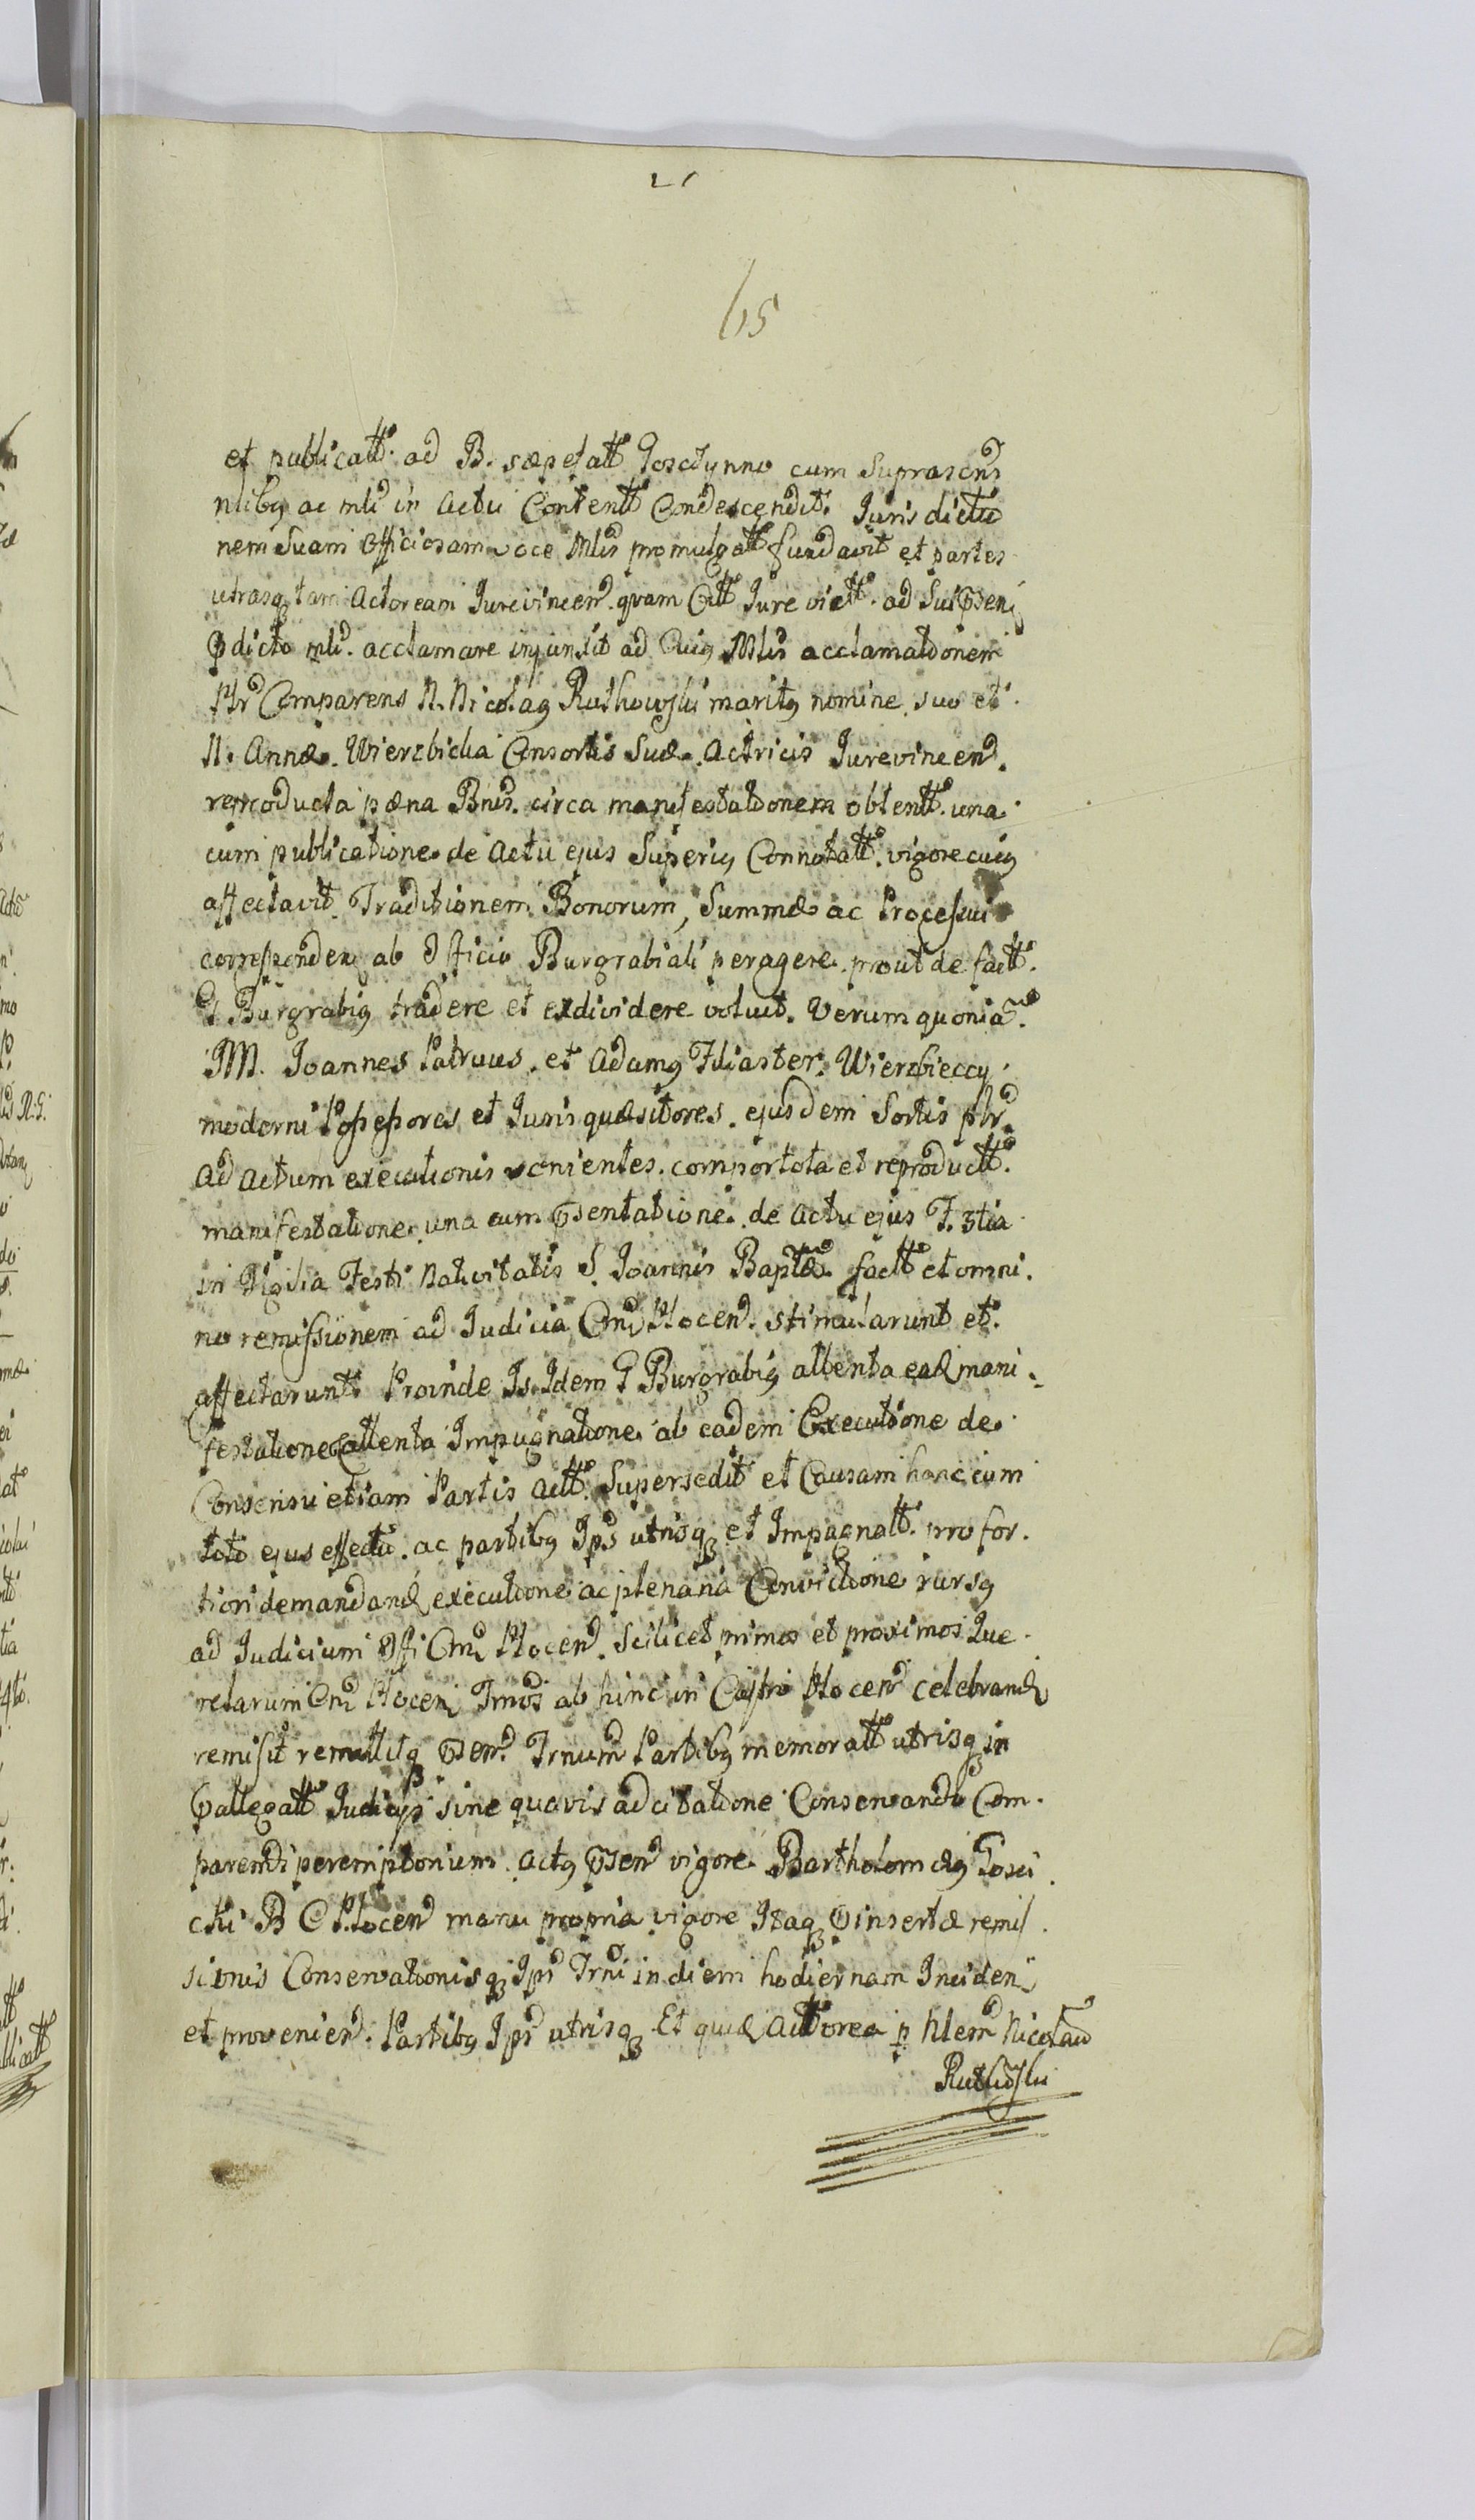 65
et publicatt. ad B. sæpefatt Goscÿnno cum Suprascris
nlibq ac mli in Actu Content Condescendit. Jurisdictio
nem Suam Officiosam voce Mlis promulgatt fundavit et partes
utrasq tam Actoream Jurevincen. quam Citt Jure vict. ad Sui psen
pdicto mli. acclamare injunxit ad Cuiq Mlis acclamationem
Plr Comparens N. Nicolaq Rutkowski maritq nomine suo et
N. Annæ Wierzbicka Consortis Suæ Actricis Jurevincen.
reproducta pæna Bnis. circa manifestationem obtent. una
cum publicatione de Actu ejus Superiq Connotatt. vigore cuiq
affectavit Traditionem Bonorum, Summæ ac Processui
corresponden ab Officio Burgrabiali peragere prout de fact.
G Burgrabiq tradere et exdividere voluit. Verum quonia
MM. Joannes Patruus et Adamq Filiaster Wierzbieccy
moderni Possessores et Juris quæsitores ejusdem Sortis plr
ad Actum executionis venientes comportata et reproductt.
manifestatione una cum psentatione de Actu ejus F. 3tia
in Vigilia Festi Nativitatis S. Joannis Baptæ fact et omni
no remissionem ad Judicia Cni Plocen. stimularunt et
affectarunt. Proinde Is Idem G Burgrabiq attenta ead mani
festatione attenta Impugnatione ab eadem Executione de
Consensu etiam Partis Actt. Supersedit et Causam hanc cum
toto ejus effectu ac partibq Ips utrisq et Impugnatt. pro for
tiori demandand executione ac plenaria Convictione rursq
ad Judicium Offi Cni Plocen. Scilicet primos et proximos Que
relarum Cni Plocen Tmos ab hinc in Castro Plocen celebrand
remisit remittitq psen. Trnum Partibq memoratt utrisq in
pallegatt Judicijs sine quavis adcitatione Conservando Com
parendi peremptorium. Actq psen vigore Bartholomæq Gosci
cki B C Plocen manu propria vigore Itaq pinsertæ remis
sionis Conservationisq Ips Trni in diem hodiernam Inciden
et provenien. Partibq Ips utrisq Et quid Actorea p Nlem Nicolau
Rutkoski